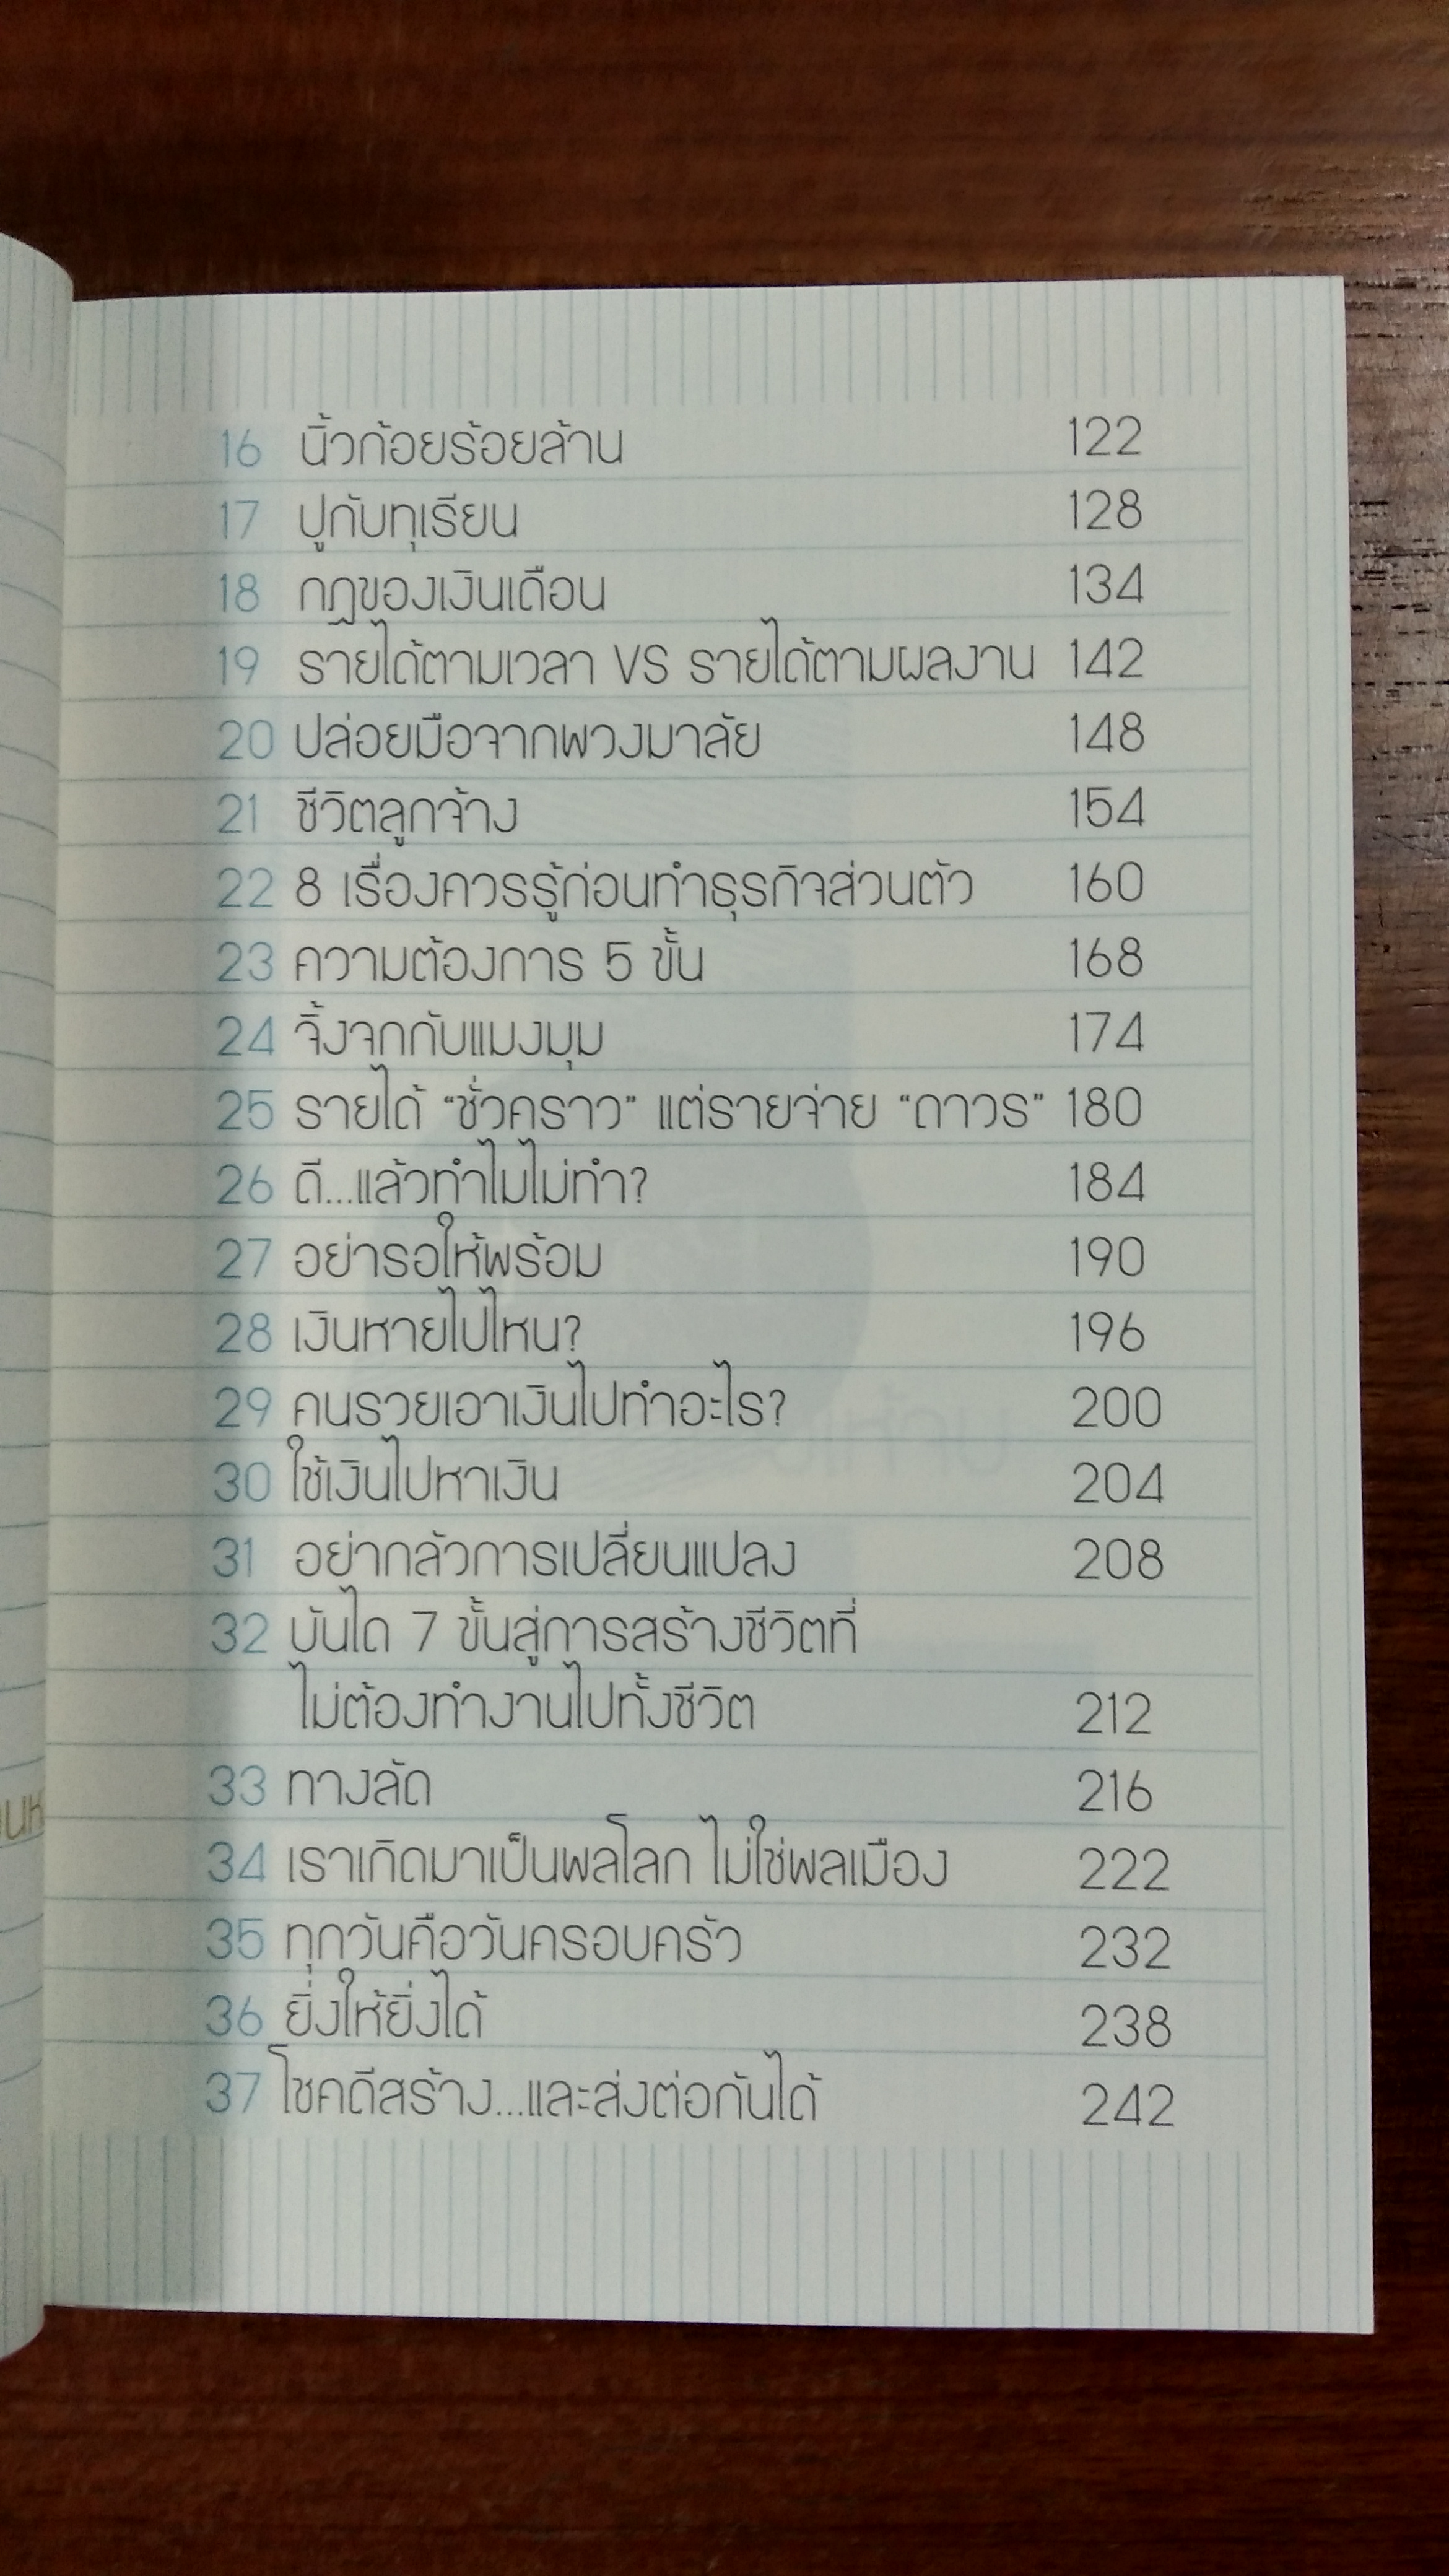 16 นิ้วก้อยร้อยล้าน 122
17 ปูกับทุเรียน 128
18 กฎของเงินเดือน 134
19 รายได้ตามเวลา VS รายได้ตามผลงาน 142
20 ปล่อยมือจากพวงมาลัย 148
21 ชีวิตลูกจ้าง 154
22 8 เรื่องควรรู้ก่อนทำธุรกิจส่วนตัว 160
23 ความต้องการ 5 ขั้น 168
24 จิ้งจกกับแมงมุม 174
25 รายได้ “ชั่วคราว” แต่รายจ่าย “ถาวร” 180
26 ดี...แล้วทำไมไม่ทำ? 184
27 อย่ารอให้พร้อม 190
28 เงินหายไปไหน? 196
29 คนรวยเอาเงินไปทำอะไร? 200
30 ใช้เงินไปหาเงิน 204
31 อย่ากลัวการเปลี่ยนแปลง 208
32 บันได 7 ขั้นสู่การสร้างชีวิตที่
ไม่ต้องทำงานไปทั้งชีวิต 212
33 ทางลัด 216
34 เราเกิดมาเป็นพลโลก ไม่ใช่พลเมือง 222
35 ทุกวันคือวันครอบครัว 232
36 ยิ่งให้ยิ่งได้ 238
37 โชคดีสร้าง...และส่งต่อกันได้ 242